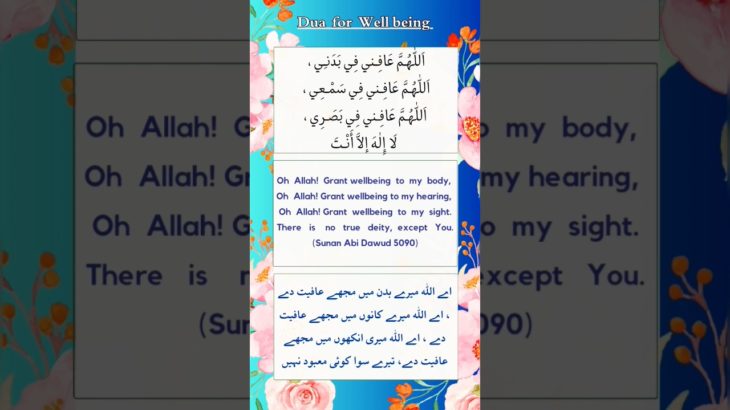 Dua for Well being
اَللّٰهُمَّ عَافِنِي فِي بَدَنِي ،
اَللّٰهُمَّ عَافِنِي فِي سَمْعِي ،
اَللّٰهُمَّ عَافِنِي فِي بَصَرِي ،
لَا إِلٰهَ إِلاَّ أَنْتَ
Oh Allah! Grant wellbeing to my body,
Oh Allah! Grant wellbeing to my hearing,
Oh Allah! Grant wellbeing to my sight.
There is no true deity, except You.
(Sunan Abi Dawud 5090)
اے اللہ میرے بدن میں مجھے عافیت دے
، اے اللہ میرے کانوں میں مجھے عافیت
دے ، اے اللہ میری انکھوں میں مجھے
عافیت دے، تیرے سوا کوئی معبود نہیں
Oh Allah! Gra
to my body,
Oh Allah! Gran
my hearing,
Oh Allah! Gra
to my sight.
There is n
except You.
(Sun
090)